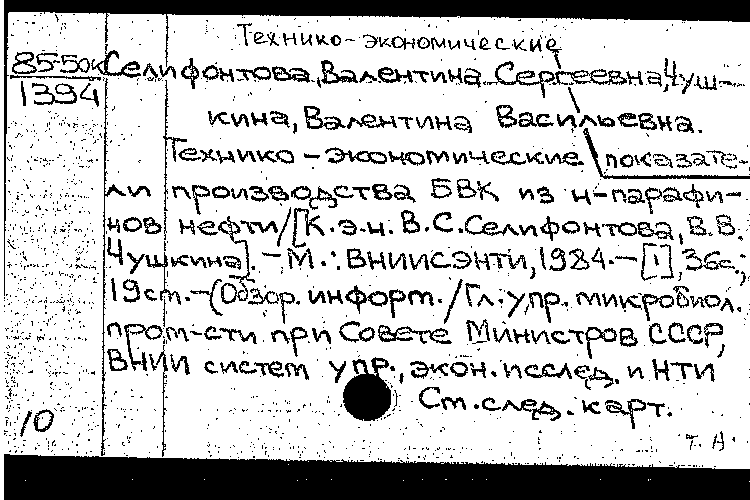 Технико-экономические
85-50к Селифонтова, Валентина Сергеевна, Чуш-
1394
кина, Валентина Васильевна.
Технико-экономические показате-
ли производства БВК из н-парафи-
нов нефти/[К.э.н. В.С.Селифонтова, В.В.
Чушкина]. - М.: ВНИИСЭНТИ, 1984. - [1], 36с.;
19см. - (Обзор. информ./Гл. упр. микробиол.
пром-сти при Совете Министров СССР,
ВНИИ систем упр., экон. исслед. и НТИ
См. след. карт.
10
т. А.